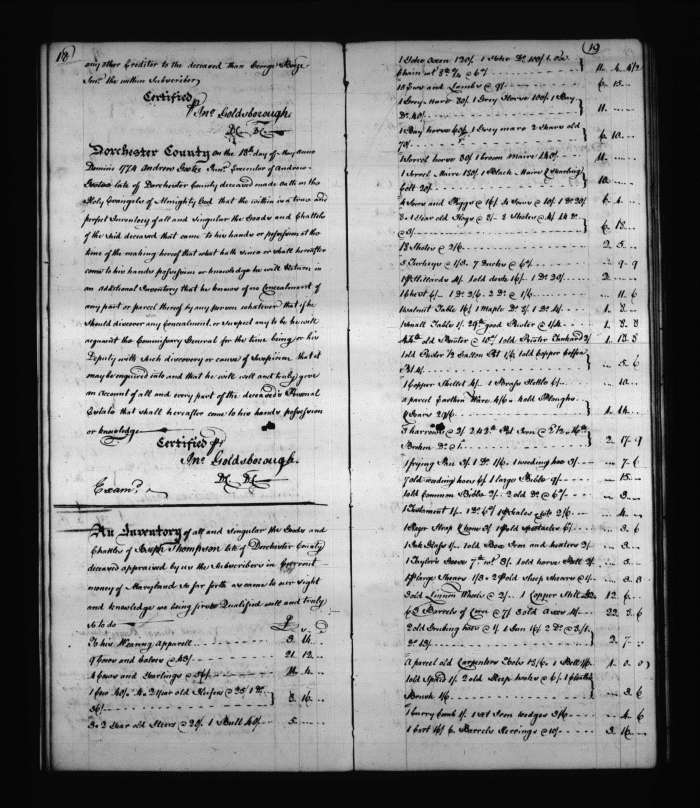 18
any other Creditor to the deceased than George Boze
Junr. the within Subscriber
Certified
pr Jno. Goldsborough
Dy. Dr.
Dorchester County on the 18th day of May Anno
Domini 1774 Andrew Junr. Executor of Andrew
late of Dorchester County deceased made oath on the
Holy Evangels of Almighty God that the within is a true and
perfect Inventory of all and Singular the Goods and Chattels
of the said deceased that came to his hands or possession at the
time of the making hereof that what hath since or shall hereafter
come to his hands possession or knowledge he will return in
an additional Inventory that he knows of no Concealment of
any part or parcel thereof by any person whatever that if he
should discover any Concealment, or suspect any to be he will
acquaint the Commissary General for the time being or his
Deputy with such discovery or cause of suspicion that it
may be enquired into and that he will well and truly give
an Account of all and every part of the deceased's Personal
Estate that shall hereafter come to his hands possession
or knowledge
Certified pr
Jno. Goldsborough
Examd.
An Inventory of all and Singular the Goods and
Chattels of Joseph Thompson late of Dorchester County
deceased appraised by us the Subscribers in Current
money of Maryland so far forth as came to our sight
and knowledge we being first Qualified well and truly
so to do
To his Wearing apparell 3. 11
9 Cows and Calves @ 48/ 21. 12
4 Cows and Yearlings @ 56/
1 Cow 40/. 4. 2 year old Heifers @ 25/ 8. 16
36/
3. 2 year old Steers @ 20/. 1 Bull 40/ 5
19
1 Yoke Oxen 120/. 1 Yoke Do. 100/. 1 Ox
Chain
15 Ewes and Lambs @ 9/ 6. 15
1 Grey Mare 80/. 1 Grey Horse 100/. 1 Bay
Do. 40/ 11
1 Bay horse 60/. 1 Grey mare 2 Years old
70/ 6. 10
1 Sorrel horse 80/ 1 brown Maire 140/ 11
1 Sorrel Maire 1 Black Maire & Yearling
Colt 20/ 10
4 Sows and Piggs @ 16/. 4 Sows @ 10/. 1 Do. 20/ 6. 4
18 Shotes @ 2/6 2. 5
5 Turkeys @ 1/3. 7 Ducks @ 6d 9. 9
1 old desk 16/. 1 Do. 20/ 2
1 Chest 6/. 1 Do. 3/6. 2 Do. @ 1/6 11. 6
1 Walnut Table 16/. 1 Maple Do. 8/. 1 Do. 4/ 1. 8
1 small Table 1/. good Pewter @ 1/4 1. 8. 8
old Pewter @ 10d. 1 old Pewter Tankard 2/ 1. 18. 8
1 old Pewter Gallon Pot 1/6 1 old Copper Coffee
Pot 4/ 5. 6
1 Copper Skillet 4/. 1 Brass Kettle 6/ 10
a parcel Earthen Ware 4/6. 4 old Ploughs
& Gears 29/6 1. 14
3 harrows @ 2/. Pot Iron @
Broken Do. @ 2. 17. 9
1 frying Pan 3/. 1 Do. 1/6. 1 weeding hoe 3/ 7. 6
7 old weeding hoes 6/ 1 large Bible 9/ 15
1 old Common Bible 2/. 2 old Do. @ 6d 3
1 Testament 1/. 4
1 Razor Strop & hone 3/. 1 old Spectacles 6d 3. 6
1 Ink Glass 1/. 1 old Box Iron and heaters 2/ 3
1 Taylors Goose 3/. 1 old horse Bell 2/ 5
1 large Shears 1/3. 2 old Sheep Shears @ 1/ 3. 3
3 old Linnen Wheels @ 3/. 1 Copper Still 12. 6
63 Barrels of Corn @ 7/ 3 old Axes 4/ 22. 3. 6
2 old Grubing hoes @ 1/. 1 Gun 16/ 2 Do. @
Do. 13/ 2. 7
a parcel old Carpenters Tools 15/6. 1 Bell 1. 0. 0
1 old Spade 1/. 2 old
Brush 1/6 3. 6
1 curry Comb 1/. 1 set Iron wedges 3/6 4. 6
1 Cart 16/ 6 Barrels Herrings @ 10/ 3. 16